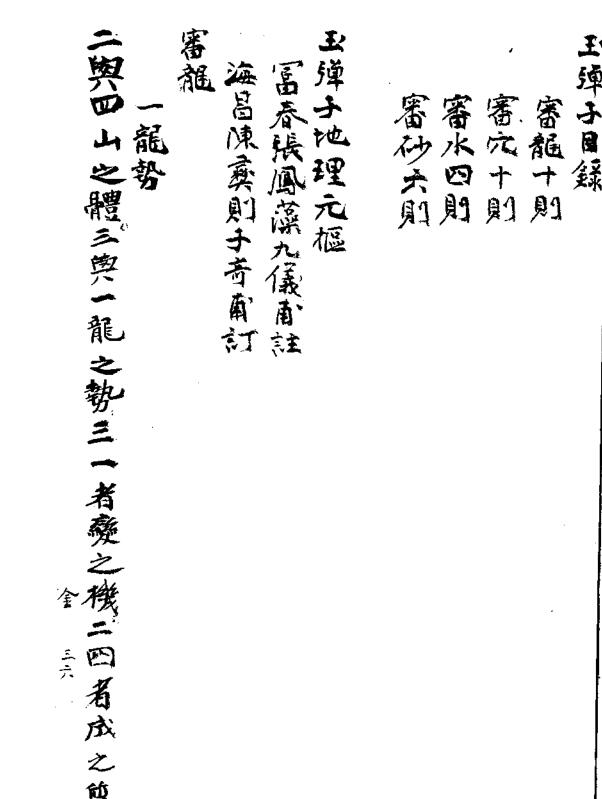 玉彈子目錄
審龍十則
審穴十則
審水四則
審砂六則
玉彈子地理元樞
富春張鳳藻九儀甫註
海昌陳彝則子奇甫訂
審龍
一龍勢
二與四山之體三與一龍之勢三一者變之機二四者成之質
金 三六